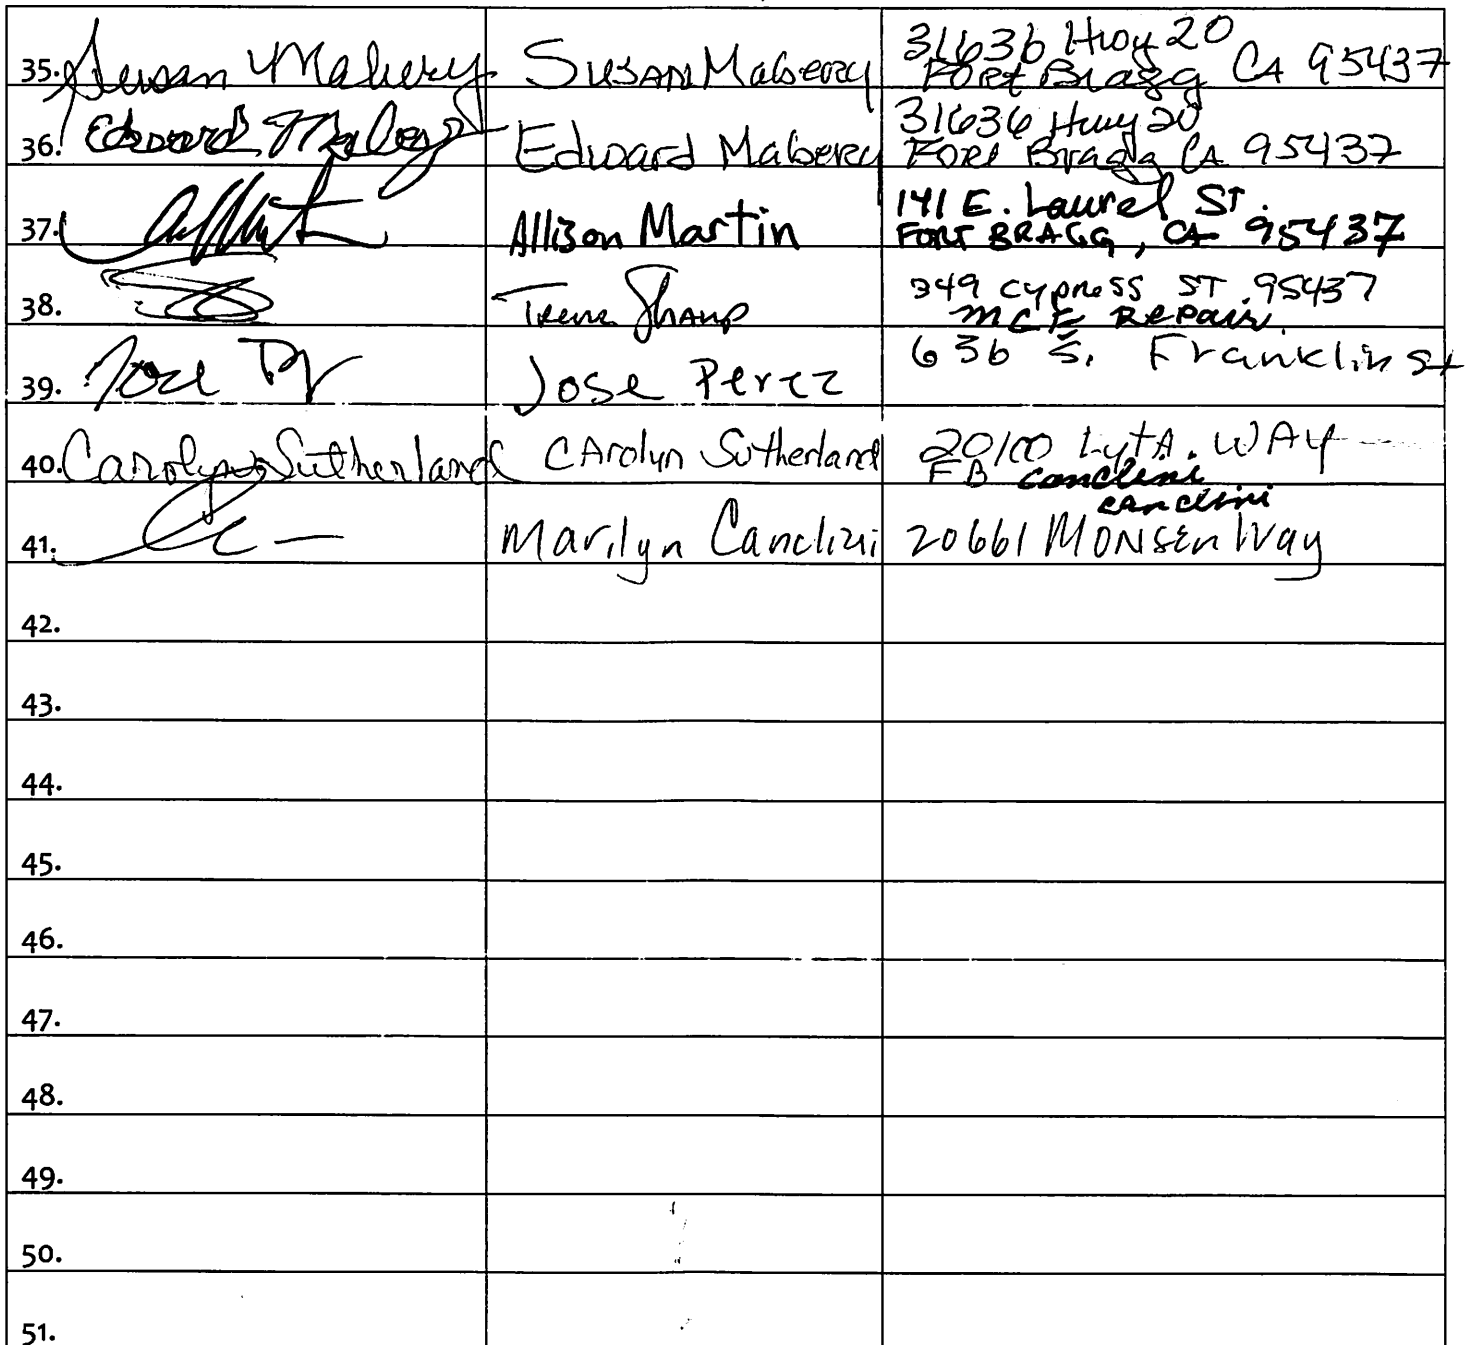 35. Susan Mabery Susan Mabery 31636 Hwy 20
Fort Bragg CA 95437
36. Edward Mabery Edward Mabery 31636 Hwy 20
Fort Bragg CA 95437
37. Allison Martin 141 E. Laurel St.
FORT BRAGG, CA 95437
38. 349 Cypress ST. 95437
MCF Repair
39. Jose Jose Perez 636 S. Franklin St
40. Carolyn Sutherland CArolyn Sutherland 20100 LytA. WAY
FB canclini
canclini
41. Marilyn Canclini 20661 MONSEn Way
42.
43.
44.
45.
46.
47.
48.
49.
50.
51.